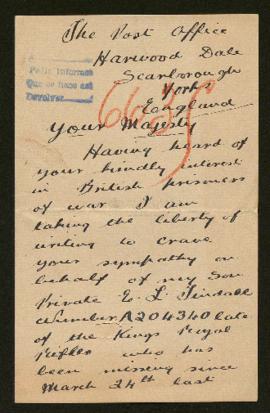 The Post Office
Harwood Dale
Scarborough
Yorks
England
Your Majesty
Having heard of
your kindly interest
in British prisoners
of war I am
taking the liberty of
writing to crave
your sympathy on
behalf of my Son
Private E. L. Tindall
Number A204340 late
of the Kings Royal
Rifles who has
been missing since
March 24th last